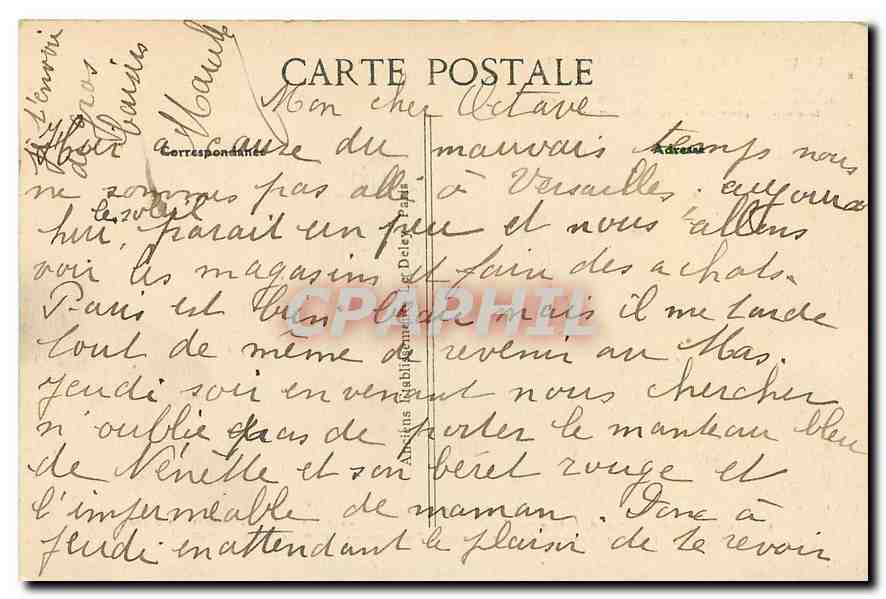 CARTE POSTALE
Mon cher Octave
Correspondance
Adresse
Hier à cause du mauvais temps nous
ne sommes pas allé à Versailles. aujourd
hui, le soleil parait un peu et nous allons
voir les magasins et faire des achats.
Paris est bien beau mais il me tarde
tout de même de revenir au Mas.
Jeudi soir en venant nous chercher
n'oublie pas de porter le manteau bleu
de Nénette et son béret rouge et
l'imperméable de maman. Donc à
Jeudi en attendant le plaisir de te revoir
Je t'envoie
de gros
baisers
Anciens Etablissements Le Deley, Paris
CPAPHIL